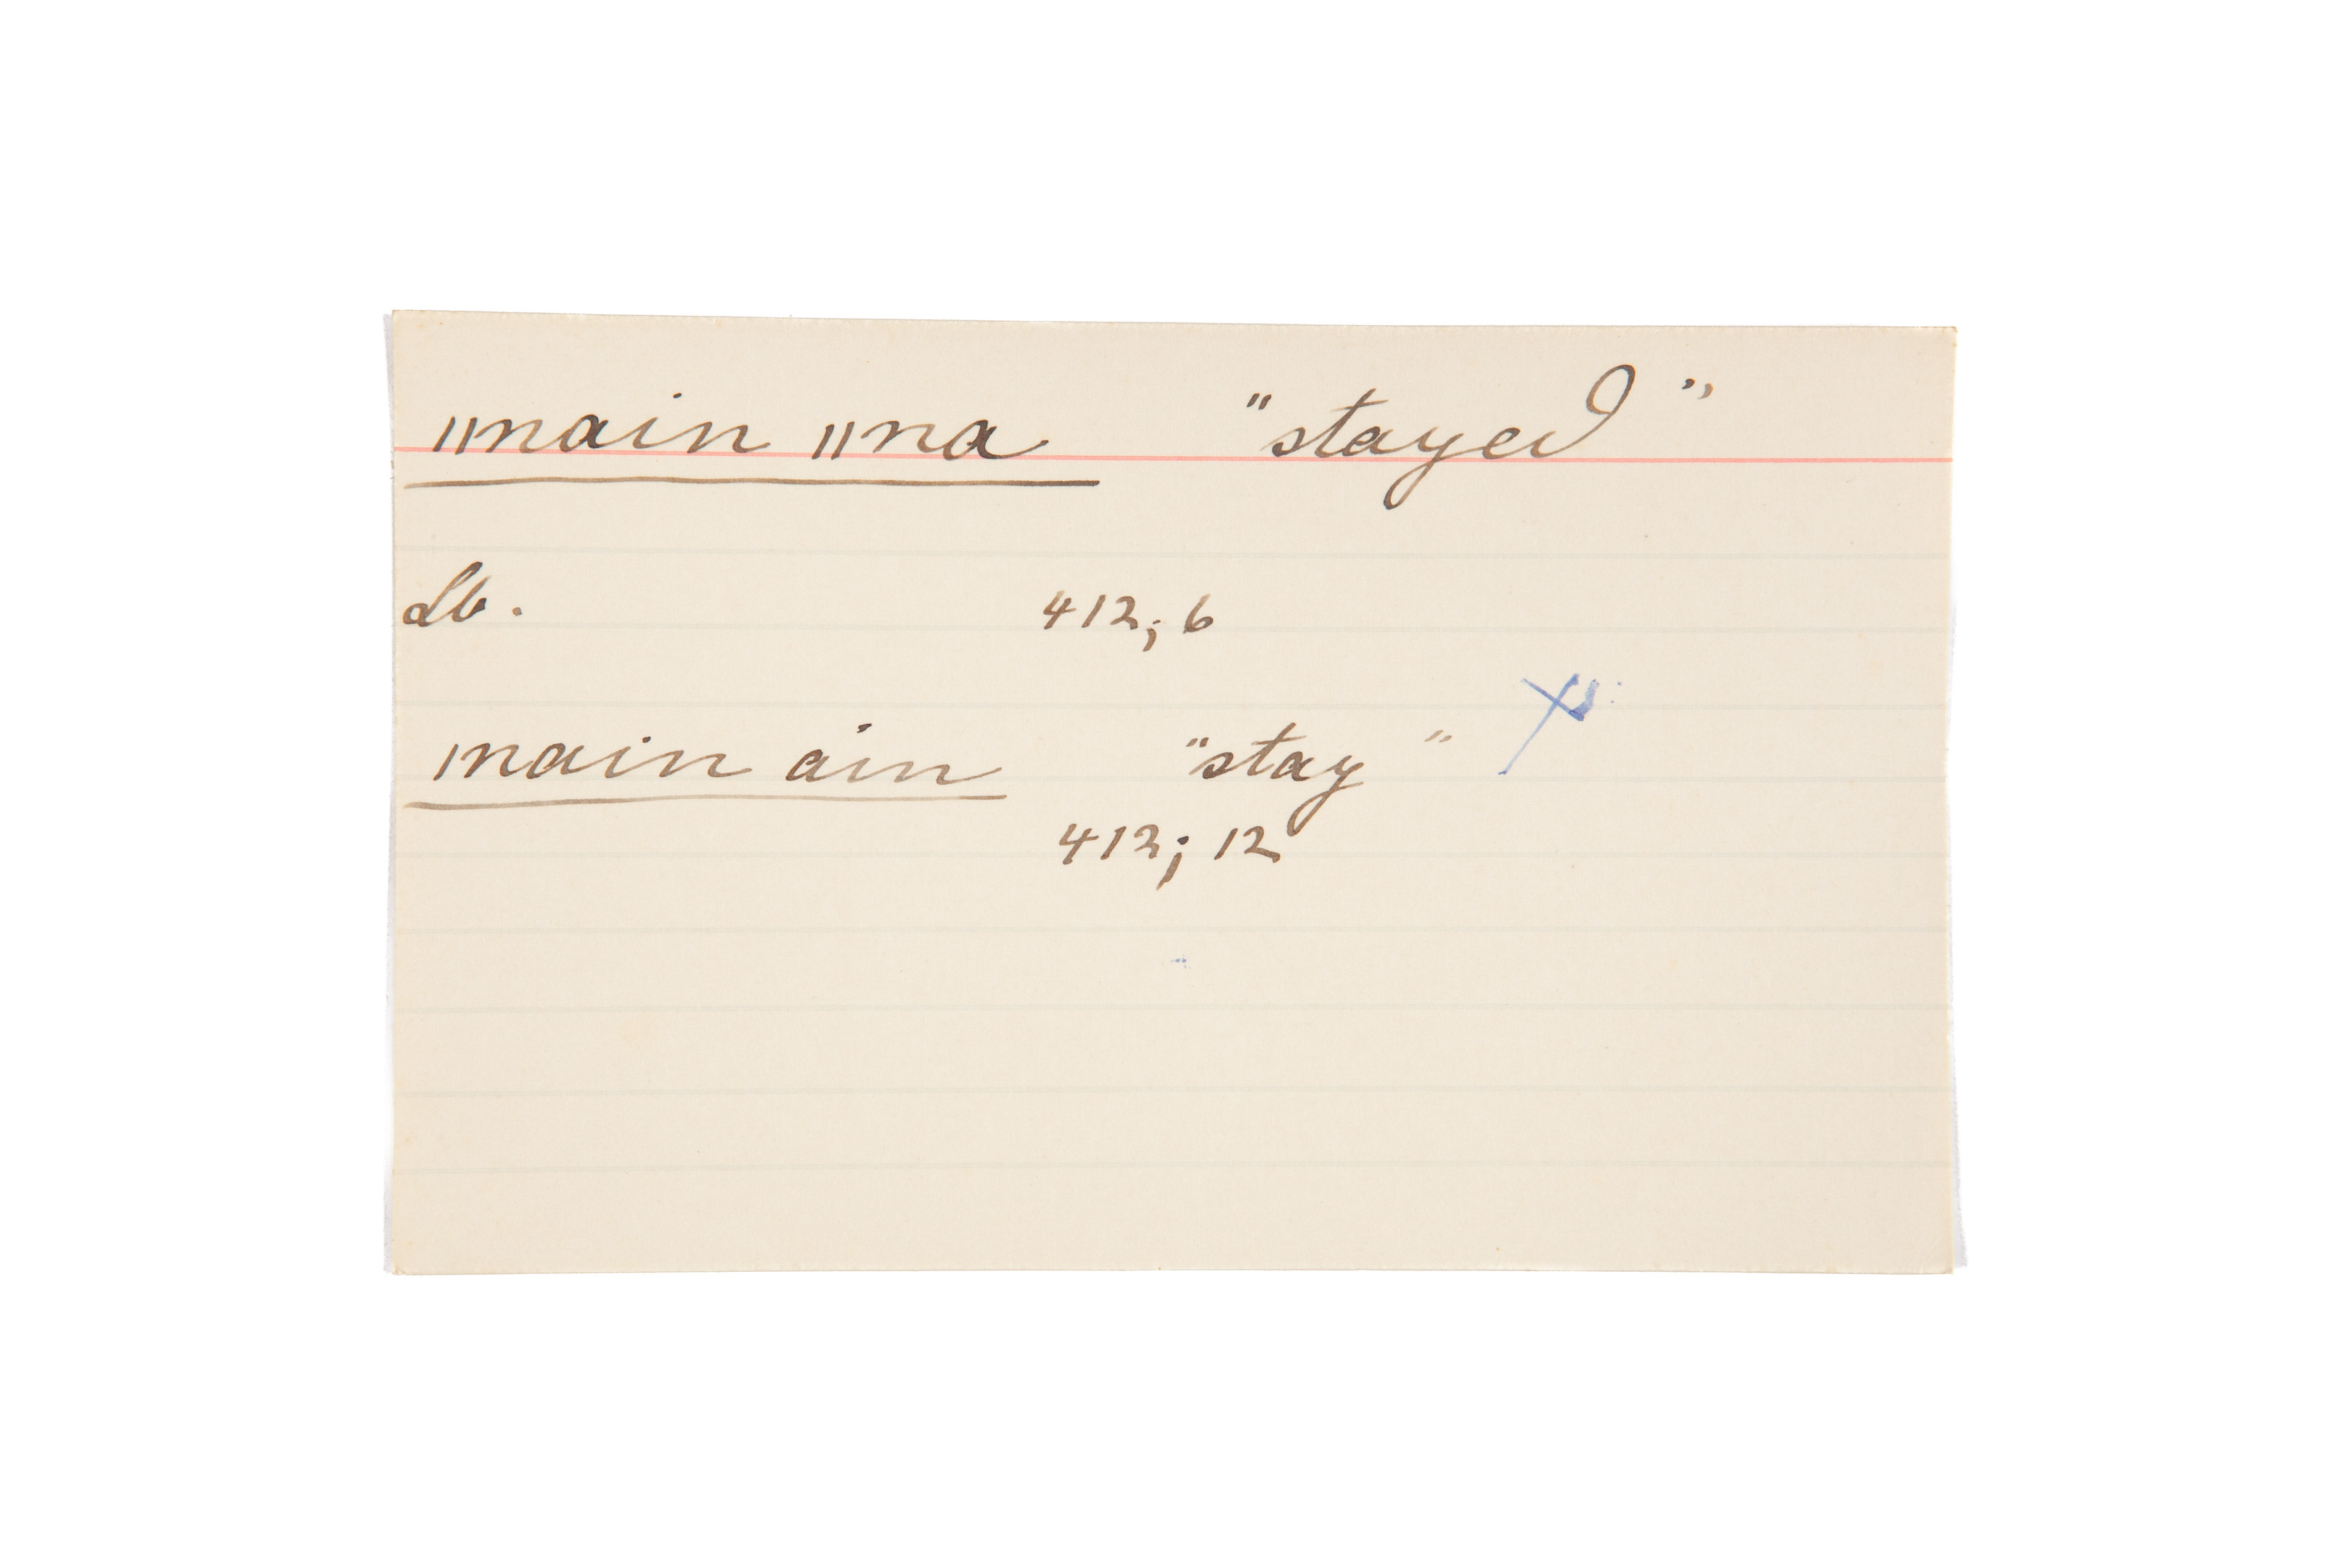 ǁnain ǁna "stayed"
Lb. 412; 6
ǀnain ain "stay"
412; 12